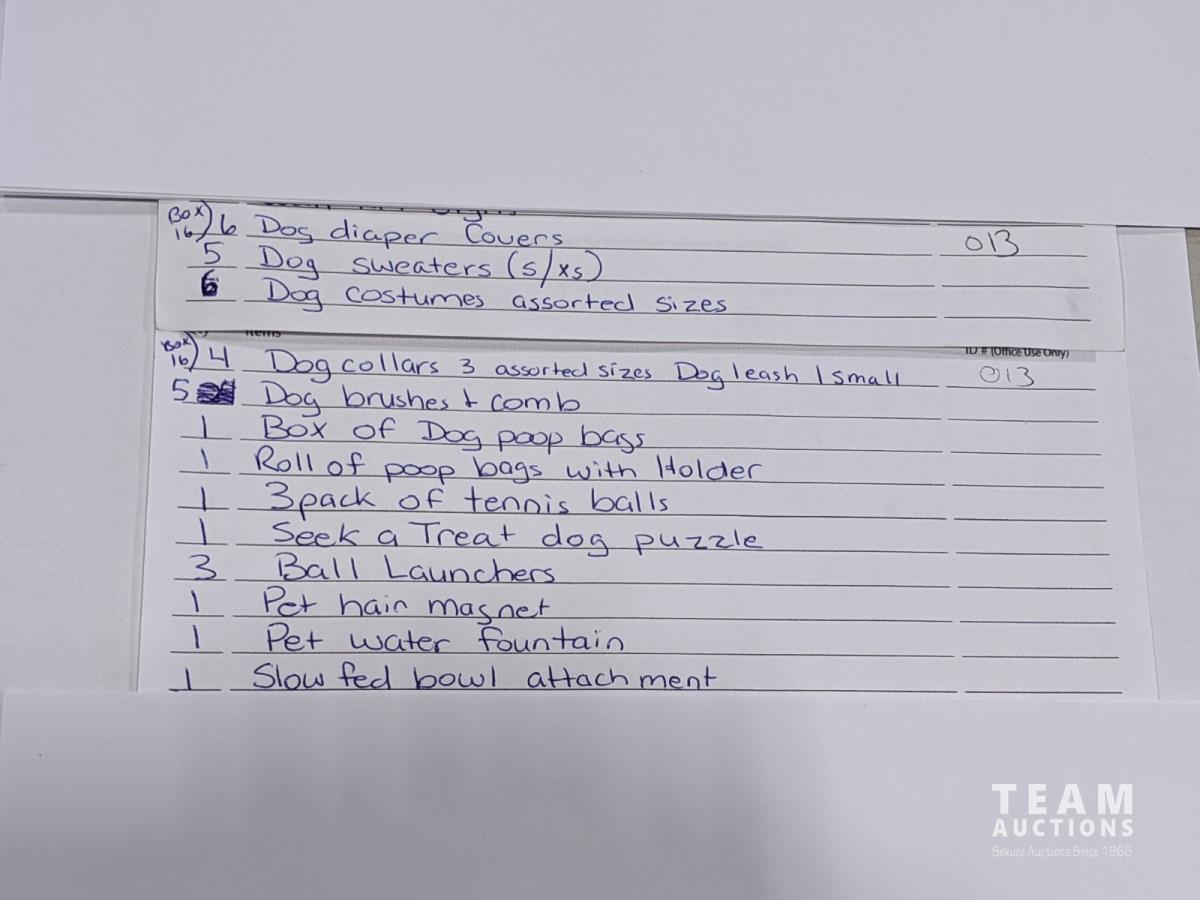 BOX
16) 6 Dog diaper Covers 013
5 Dog sweaters (s/xs)
6 Dog costumes assorted sizes
Items
ID # (Office Use Only)
BOX
16) 4 Dog collars 3 assorted sizes Dog leash 1 small 013
5 Dog brushes + comb
1 Box of Dog poop bags
1 Roll of poop bags with Holder
1 3pack of tennis balls
1 Seek a Treat dog puzzle
3 Ball Launchers
1 Pet hair magnet
1 Pet water fountain
1 Slow fed bowl attachment
TEAM
AUCTIONS
Sekura Auctions Since 1966